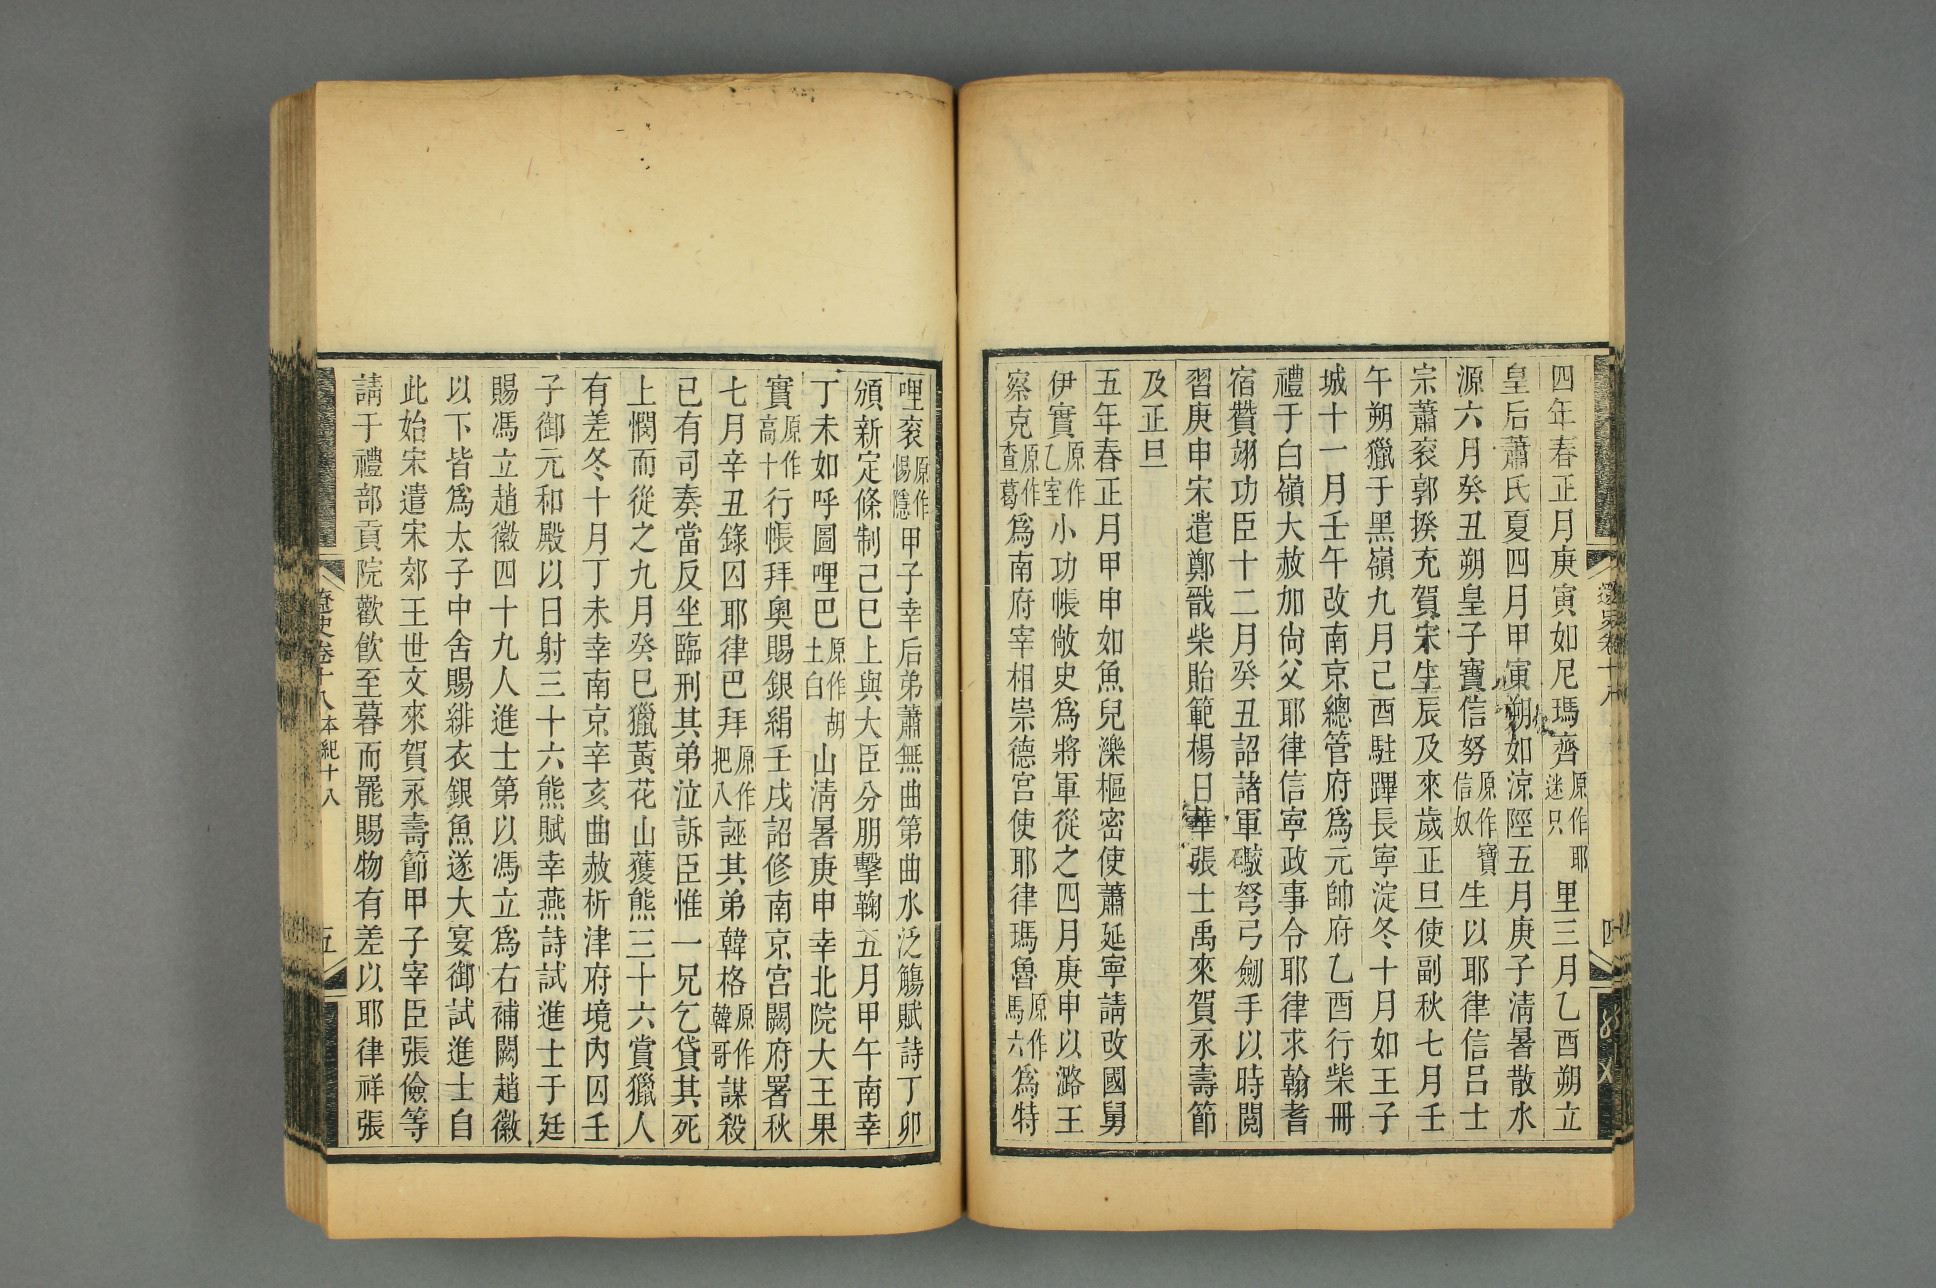 四年春正月庚寅如尼瑪齊原作耶迷只里三月乙酉朔立
皇后蕭氏夏四月甲寅朔如涼陘五月庚子清暑散水
源六月癸丑朔皇子寶信努原作寶信奴生以耶律信呂士
宗蕭袞郭揆充賀宋生辰及來歲正旦使副秋七月壬
午朔獵于黑嶺九月己酉駐蹕長寧淀冬十月如王子
城十一月壬午改南京總管府為元帥府乙酉行柴冊
禮于白嶺大赦加尚父耶律信寧政事令耶律求翰耆
宿贊翊功臣十二月癸丑詔諸軍礮弩弓劒手以時閱
習庚申宋遣鄭戩柴貽範楊日華張士禹來賀永壽節
及正旦
五年春正月甲申如魚兒濼樞密使蕭延寧請改國舅
伊實原作乙室小功帳敞史為將軍從之四月庚申以潞王
察克原作查葛為南府宰相崇德宮使耶律瑪魯原作馬六為特
遼史卷十八
四
哩袞原作惕隱甲子幸后弟蕭無曲第曲水泛觴賦詩丁卯
頒新定條制己巳上與大臣分朋擊鞠五月甲午南幸
丁未如呼圖哩巴原作胡土白山清暑庚申幸北院大王果
實原作高十行帳拜奧賜銀絹壬戌詔修南京宮闕府署秋
七月辛丑錄囚耶律巴拜原作把八誣其弟韓格原作韓哥謀殺
已有司奏當反坐臨刑其弟泣訴臣惟一兄乞貸其死
上憫而從之九月癸巳獵黃花山獲熊三十六賞獵人
有差冬十月丁未幸南京辛亥曲赦析津府境內囚壬
子御元和殿以日射三十六熊賦幸燕詩試進士于廷
賜馮立趙徽四十九人進士第以馮立為右補闕趙徽
以下皆為太子中舍賜緋衣銀魚遂大宴御試進士自
此始宋遣宋郊王世文來賀永壽節甲子宰臣張儉等
請于禮部貢院歡飲至暮而罷賜物有差以耶律祥張
遼史卷十八本紀十八
五